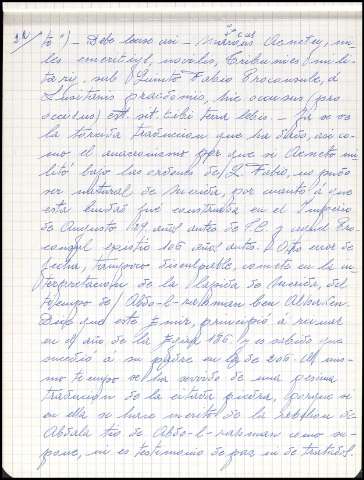 to") – Debe leerse así – Acneteu, mi-
les emeritus, novilis, tribunus mili-
taris, sub Quinto Fabio Proconsule, a
Lusitanis praedomis, hic ocussus (pro
occisus) est. sit tibi terra lebis. – Ya se ve
la torcida traducion que ha dado, así co-
mo el anacronismo por que si Acneto mi-
litó bajo las ordenes de Q. Fabio, no pudo
ser natural de Mérida, por cuanto á que
esta ciudad fué construida en el Imperio
de Augusto 29 años antes de J.C. y aquel Pro-
consul existió 106 años antes. – Otro error de
fecha, tampoco disculpable, comete en la in-
terpretacion de la lápida de Mérida, del
tiempo de Abdo-l-rahman ben Alhaken.
Dice que este Emir, principió á reinar
en el año de la Egira 186 y es sabido que
sucedió á su padre en el de 206. Al mis-
mo tiempo se ha servido de una pésima
traducion de la citada piedra, porque ni
en ella se hace merito de la rebelion de
Abdala tio de Abdo-l-rahman como su-
pone, ni es testimonio de paz ni de tratados.